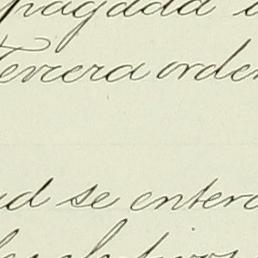 pagada a
Tercera orden
ud se entera